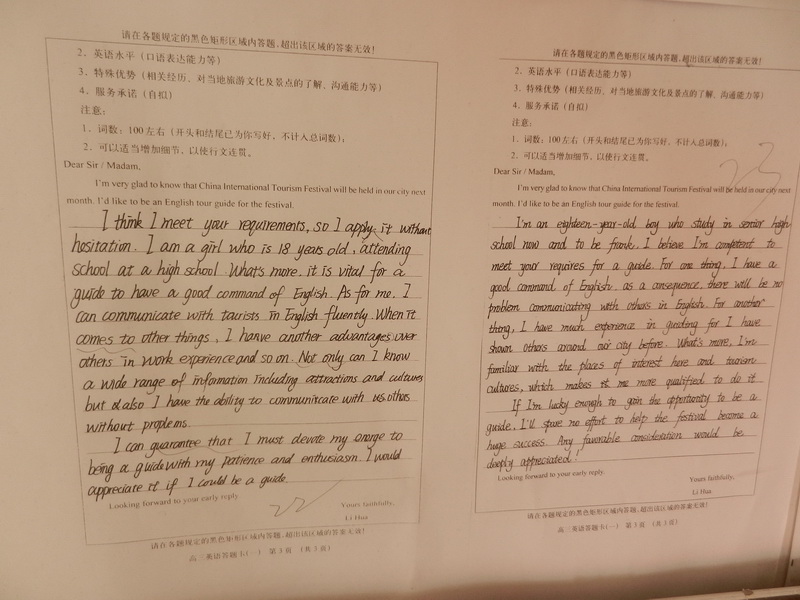 请在各题规定的黑色矩形区域内答题,超出该区域的答案无效!
2. 英语水平(口语表达能力等)
3. 特殊优势(相关经历、对当地旅游文化及景点的了解、沟通能力等)
4. 服务承诺(自拟)
注意:
1. 词数:100左右(开头和结尾已为你写好,不计入总词数);
2. 可以适当增加细节,以使行文连贯。
Dear Sir / Madam,
I'm very glad to know that China International Tourism Festival will be held in our city next
month. I'd like to be an English tour guide for the festival.
I think I meet your requirements, so I apply it without
hositation. I am a girl who is 18 years old, attending
school at a high school. What's more, it is vital for a
guide to have a good command of English. As for me, I
can communicate with tourists in English fluently. When it
comes to other things, I hanve another advantages over
others in work experience and so on. Not only can I know
a wide range of information including attractions and cultures
but also I have the ability to communicate with us others
without proplems.
I can guarantee that I must devote my energe to
being a guide with my patience and enthusiasm. I would
appreciate it if I could be a guide.
Looking forward to your early reply.
22
Yours faithfully,
Li Hua
请在各题规定的黑色矩形区域内答题,超出该区域的答案无效!
高三英语答题卡(一) 第3页 (共3页)
请在各题规定的黑色矩形区域内答题,超出该区域的答案无效!
2. 英语水平(口语表达能力等)
3. 特殊优势(相关经历、对当地旅游文化及景点的了解、沟通能力等)
4. 服务承诺(自拟)
注意:
1. 词数:100左右(开头和结尾已为你写好,不计入总词数);
2. 可以适当增加细节,以使行文连贯。
23
Dear Sir / Madam,
I'm very glad to know that China International Tourism Festival will be held in our city next
month. I'd like to be an English tour guide for the festival.
I'm an eighteen-year-old boy who study in senior high
school now and to be frank, I believe I'm competent to
meet your requires for a guide. For one thing, I have a
good command of English, as a consequence, there will be no
problem communicating with others in English. For another
thing, I have much experience in guiding for I have
shown others around our city before. What's more, I'm
familiar with the places of interest here and tourism
cultures, which makes it me more qualified to do it
If I'm lucky enough to gain the opportunity to be a
guide, I'll spare no effort to help the festival become a
huge success. Any favorable consideration would be
deeply appreciated!
Looking forward to your early reply.
Yours faithfully,
Li Hua
请在各题规定的黑色矩形区域内答题,超出该区域的答案无效!
高三英语答题卡(一) 第3页 (共3页)